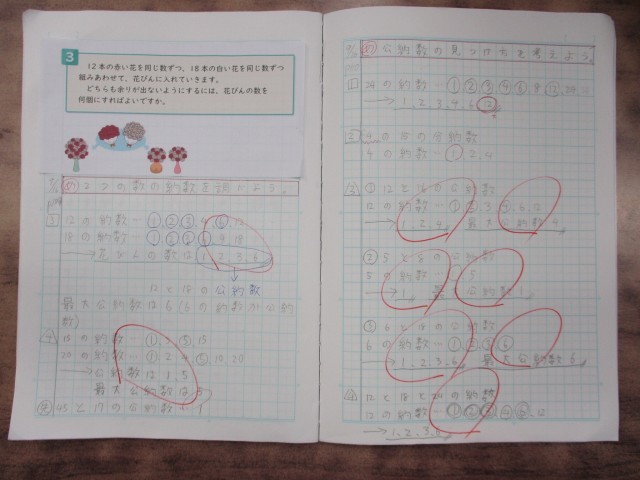 3
12本の赤い花を同じ数ずつ、18本の白い花を同じ数ずつ
組みあわせて、花びんに入れていきます。
どちらも余りが出ないようにするには、花びんの数を
何個にすればよいですか。
2つの数の約数を調べよう。
12の約数…1,2,3,4,6,12
18の約数…1,2,3,6,9,18
→花びんの数は1,2,3,6
12と18の公約数
最大公約数は6(6の約数が公約
数)
15の約数…1,3,5,15
20の約数…1,2,4,5,10,20
→公約数は1,5
最大公約数は5
45と17の公約数…1
公約数の見つけ方を考えよう。
24の約数…1,2,3,4,6,8,12,24
→1,2,3,4,6,12
4の約数…1,2,4
①12と16の公約数
12の約数…1,2,3,4,6,12
→1,2,4 最大公約数4
5の約数
→1
③6と
の公約数
6の約数…1,2,3,6
→1,2,3,6 最大公約数6
12の約数…1,2,3,4,6,12
→1,2,3,6